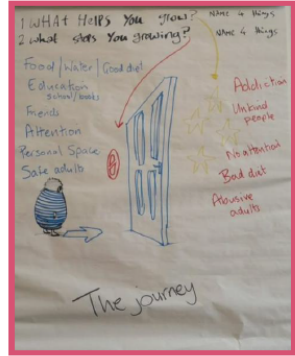 1 WHAT HELPS YOU grow? NAME 4 things
2 what stops You growing? NAME 4 things
Food/Water/Good diet
Education
school/books
Friends
Attention
Personal Space
Safe adults
Addiction
Unkind
people
No attention
Bad diet
Abusive
adults
The journey